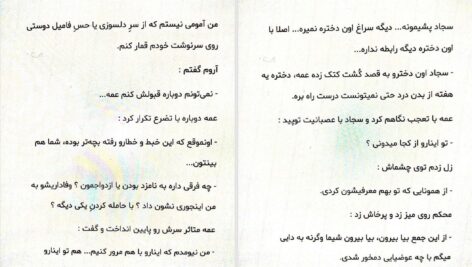 سجاد پشیمونه... دیگه سراغ اون دختره نمیره... اصلا با
اون دختره دیگه رابطه نداره...
- سجاد اون دخترو به قصد کُشت کتک زده عمه، دختره یه
هفته از بدن درد حتی نمیتونست درست راه بره.
عمه با تعجب نگاهم کرد و سجاد با عصبانیت توپید :
- تو اینارو از کجا میدونی ؟
زل زدم توی چشماش :
- از همونایی که تو بهم معرفیشون کردی.
محکم روی میز زد و پرخاش زد :
- از این جمع بیا بیرون، بیا بیرون شیما وگرنه به دایی
میگم با چه عوضیایی دمخور شدی.
من آمومی نیستم که از سرِ دلسوزی یا حسِ فامیل دوستی
روی سرنوشت خودم قمار کنم.
آروم گفتم :
- نمی‌تونم دوباره قبولش کنم عمه...
عمه دوباره با تضرع تکرار کرد :
- اونموقع که این خبط و خطارو رفته بچه‌تر بوده، شما هم
بینتون...
- چه فرقی داره به نامزد بودن یا ازدواجمون ؟ وفاداریشو به
من اینجوری نشون داد ؟ با حامله کردنِ یکی دیگه ؟
عمه متاثر سرش رو پایین انداخت و گفت :
- من نیومدم که اینارو با هم مرور کنیم... هم تو اینارو